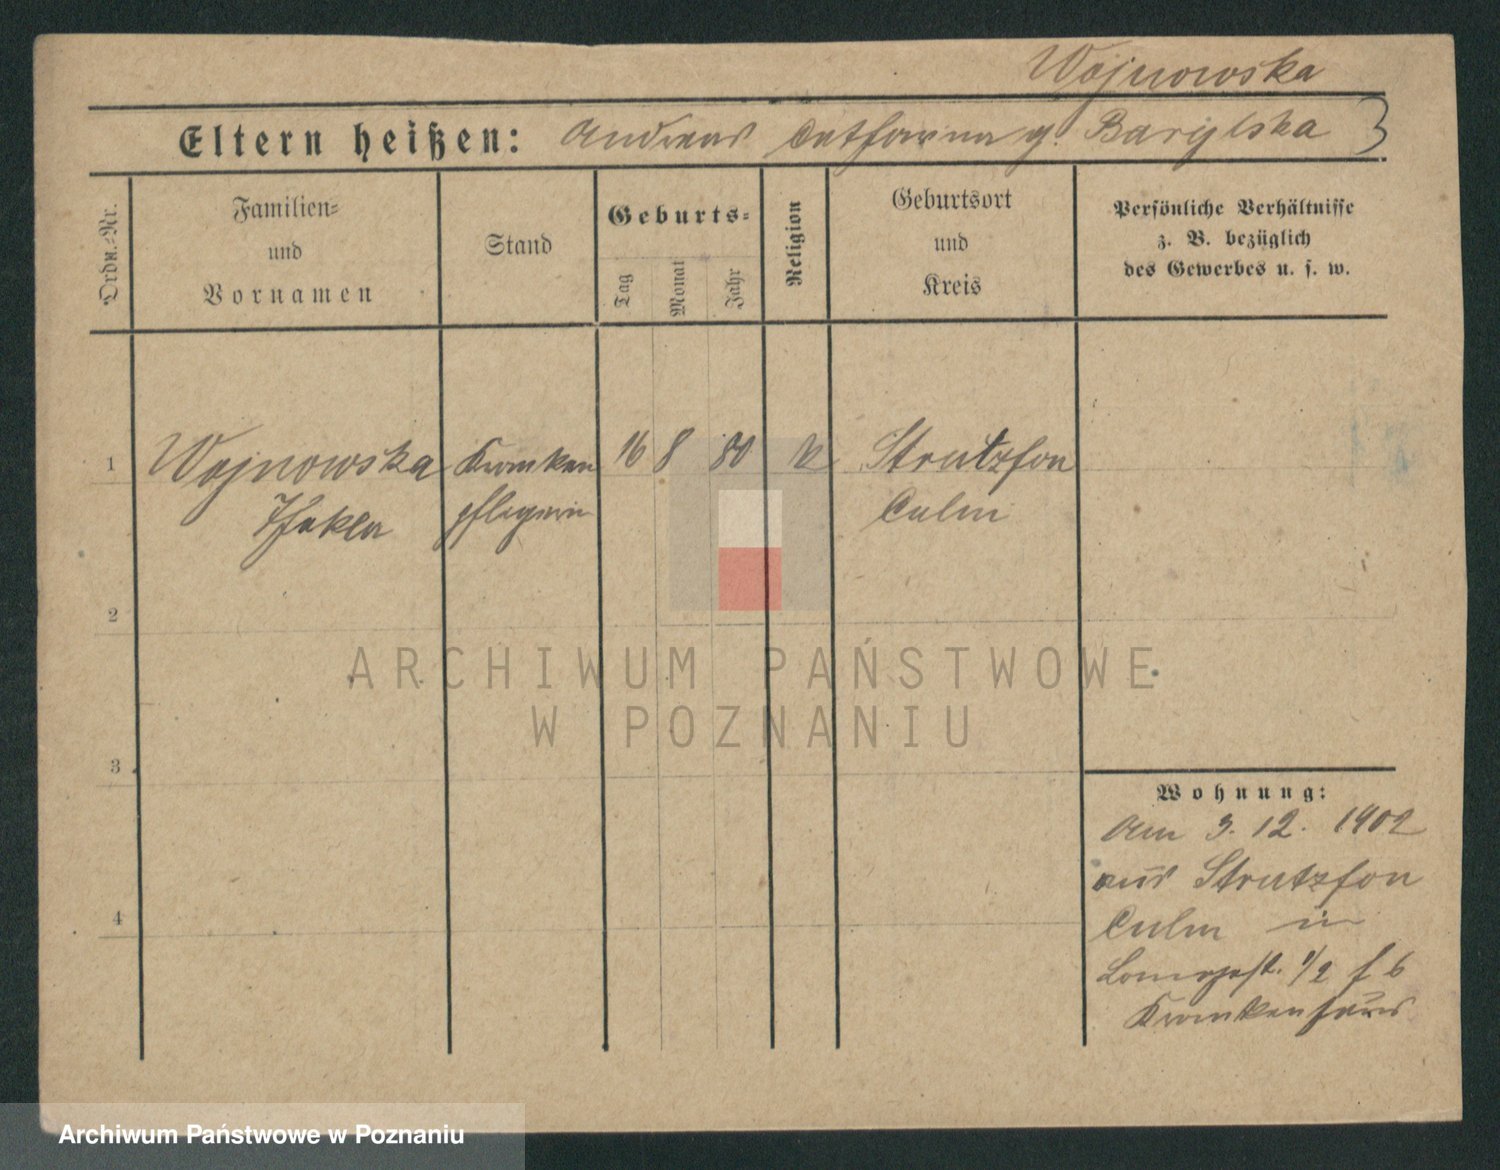 Wojnowska
Eltern heißen: Andreas Catharina g. Barylska 3
Ordn.-Nr.
Familien-
und
Vornamen
Stand
Geburts-
Tag
Monat
Jahr
Religion
Geburtsort
und
Kreis
Persönliche Verhältnisse
z. B. bezüglich
des Gewerbes u. s. w.
1 Wojnowska Kranken 16 8 80 k Strutzfon
Thekla pflegerin Culm
2
ARCHIWUM PAŃSTWOWE
W POZNANIU
3
Wohnung:
Am 3. 12. 1902
aus Strutzfon
4 Culm in
1/2 f b
Krankenhaus
Archiwum Państwowe w Poznaniu